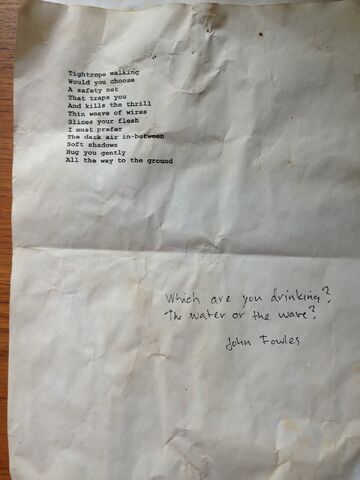 Tightrope walking
Would you choose
A safety net
That traps you
And kills the thrill
Thin weave of wires
Slices your flesh
I must prefer
The dark air in-between
Soft shadows
Hug you gently
All the way to the ground
Which are you drinking?
The water or the wave?
John Fowles